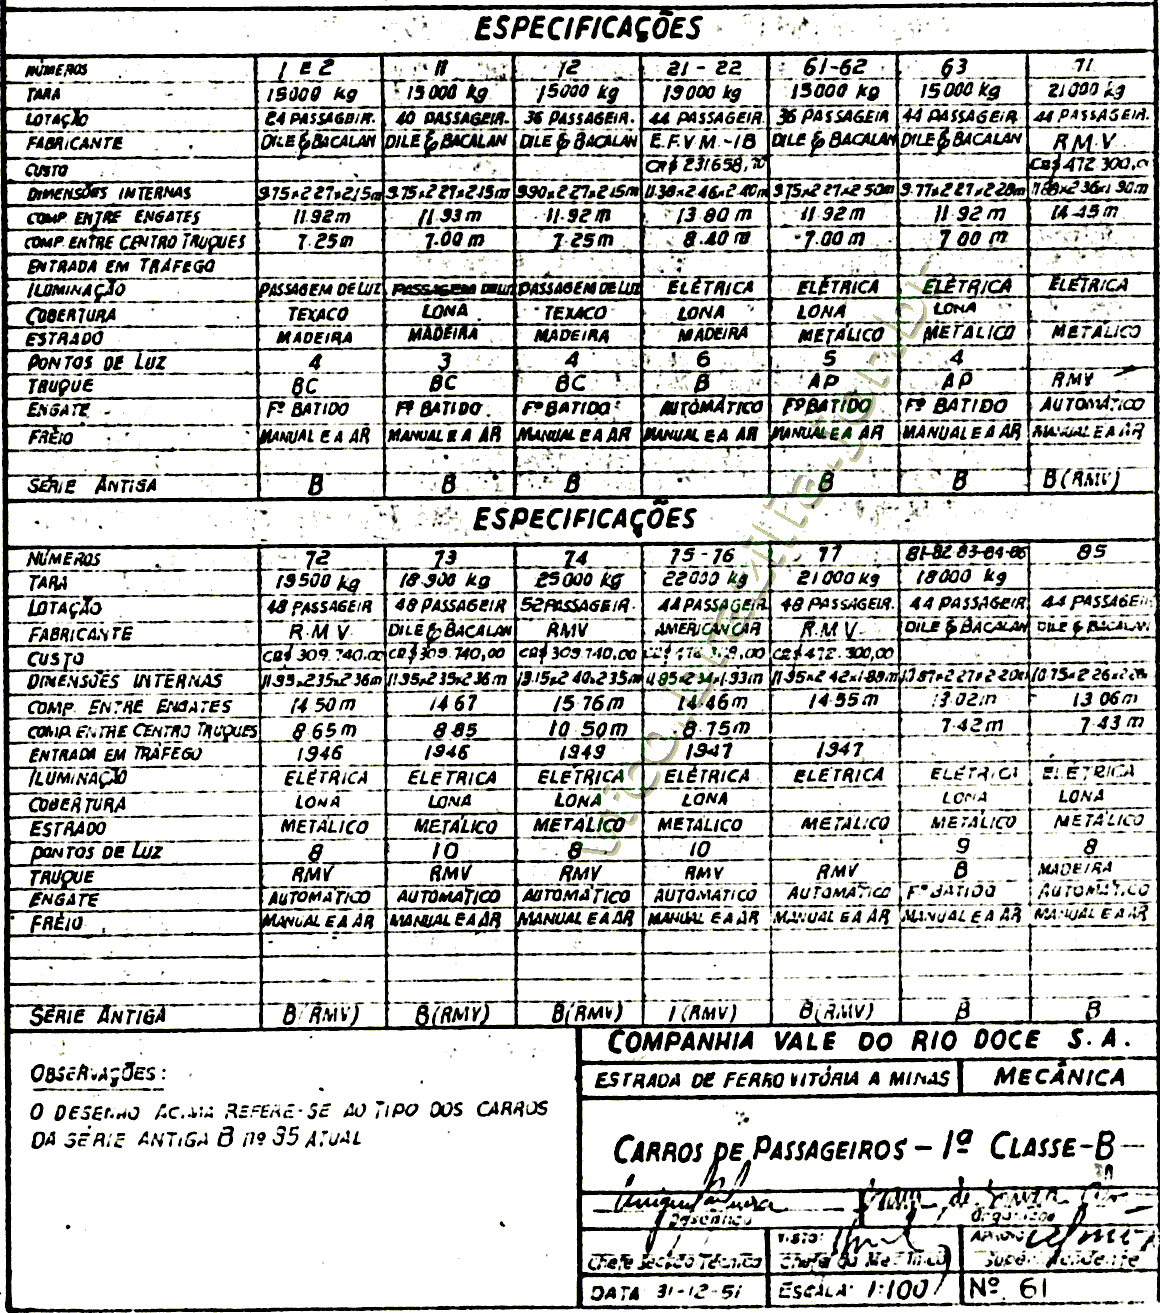 ESPECIFICAÇÕES
NÚMEROS 1 E 2 11 12 21 - 22 61-62 63 71
TARA 15000 kg 15000 kg 15000 kg 19000 kg 15000 kg 15000 kg 21000 kg
LOTAÇÃO 24 PASSAGEIR. 40 PASSAGEIR. 36 PASSAGEIR. 44 PASSAGEIR. 36 PASSAGEIR 44 PASSAGEIR 44 PASSAGEIR.
FABRICANTE DILE & BACALAN DILE & BACALAN DILE & BACALAN E.F.V.M.-IB DILE & BACALAN DILE & BACALAN R.M.V
CUSTO CR$ 231658,70 CR$ 472 300,0
DIMENSÕES INTERNAS 9.75x2.27x2.15m 9.75x2.27x2.15m 9.90x2.27x2.15m 11.38x2.46x2.40m 9.75x2.27x2.50m 9.77x2.27x2.28m 11.88x2.36x1.90m
COMP. ENTRE ENGATES 11.92 m 11.93 m 11.92 m 13.80 m 11.92 m 11.92 m 14.45 m
COMP. ENTRE CENTRO TRUQUES 7.25m 7.00 m 7.25 m 8.40 m 7.00 m 7.00 m
ENTRADA EM TRÁFEGO
ILUMINAÇÃO PASSAGEM DE LUZ PASSAGEM DE LUZ PASSAGEM DE LUZ ELÉTRICA ELÉTRICA ELÉTRICA ELÉTRICA
COBERTURA TEXACO LONA TEXACO LONA LONA LONA
ESTRADO MADEIRA MADEIRA MADEIRA MADEIRA METÁLICO METÁLICO METÁLICO
PONTOS DE LUZ 4 3 4 6 5 4
TRUQUE BC BC BC B AP AP RMV
ENGATE Fº BATIDO Fº BATIDO Fº BATIDO AUTOMÁTICO Fº BATIDO Fº BATIDO AUTOMÁTICO
FRÊIO MANUAL E A AR MANUAL E A AR MANUAL E A AR MANUAL E A AR MANUAL E A AR MANUAL E A AR MANUAL E A AR
SÉRIE ANTIGA B B B B B B (RMV)
ESPECIFICAÇÕES
NÚMEROS 72 73 74 75 - 76 77 81-82 83-84-86 85
TARA 19500 kg 18.900 kg 25000 kg 22000 kg 21000 kg 18000 kg
LOTAÇÃO 48 PASSAGEIR 48 PASSAGEIR 52 PASSAGEIR. 44 PASSAGEIR. 48 PASSAGEIR. 44 PASSAGEIR 44 PASSAGEIR
FABRICANTE R.M.V. DILE & BACALAN RMV AMERICAN CAR R.M.V. DILE & BACALAN DILE & BACALAN
CUSTO CR$ 309.740,00 CR$ 309.740,00 CR$ 309.740,00 CR$ 472.300,00
DIMENSÕES INTERNAS 11.95x2.35x2.36m 11.95x2.35x2.36m 13.15x2.40x2.35m 11.95x2.42x1.89m
COMP. ENTRE ENGATES 14.50 m 14.67 15.76 m 14.46m 14.55 m 13.02m 13.06m
COMP. ENTRE CENTRO TRUQUES 8.65 m 8.85 10.50m 8.75m 7.42 m 7.43 m
ENTRADA EM TRÁFEGO 1946 1946 1949 1947 1947
ILUMINAÇÃO ELÉTRICA ELETRICA ELÉTRICA ELÉTRICA ELETRICA ELÉTRICA ELÉTRICA
COBERTURA LONA LONA LONA LONA LONA LONA
ESTRADO METÁLICO METÁLICO METÁLICO METÁLICO METÁLICO METÁLICO METÁLICO
PONTOS DE LUZ 8 10 8 10 9 8
TRUQUE RMV RMV RMV RMV RMV B MADEIRA
ENGATE AUTOMÁTICO AUTOMÁTICO AUTOMÁTICO AUTOMÁTICO AUTOMÁTICO Fº BATIDO AUTOMÁTICO
FRÊIO MANUAL E A AR MANUAL E A AR MANUAL E A AR MANUAL E A AR MANUAL E A AR MANUAL E A AR MANUAL E A AR
SÉRIE ANTIGA B (RMV) B (RMV) B (RMV) I (RMV) B (RMV) B B
OBSERVAÇÕES:
O DESENHO ACIMA REFERE-SE AO TIPO DOS CARROS
DA SÉRIE ANTIGA B nº 35 ATUAL
COMPANHIA VALE DO RIO DOCE S. A.
ESTRADA DE FERRO VITÓRIA A MINAS MECÂNICA
CARROS DE PASSAGEIROS - 1ª CLASSE-B
Desenhou Organizou
VISTO:
Chefe Secção Técnico Chefe da Mecânica Superintendente
DATA 31-12-51 ESCALA: 1:100 Nº 61